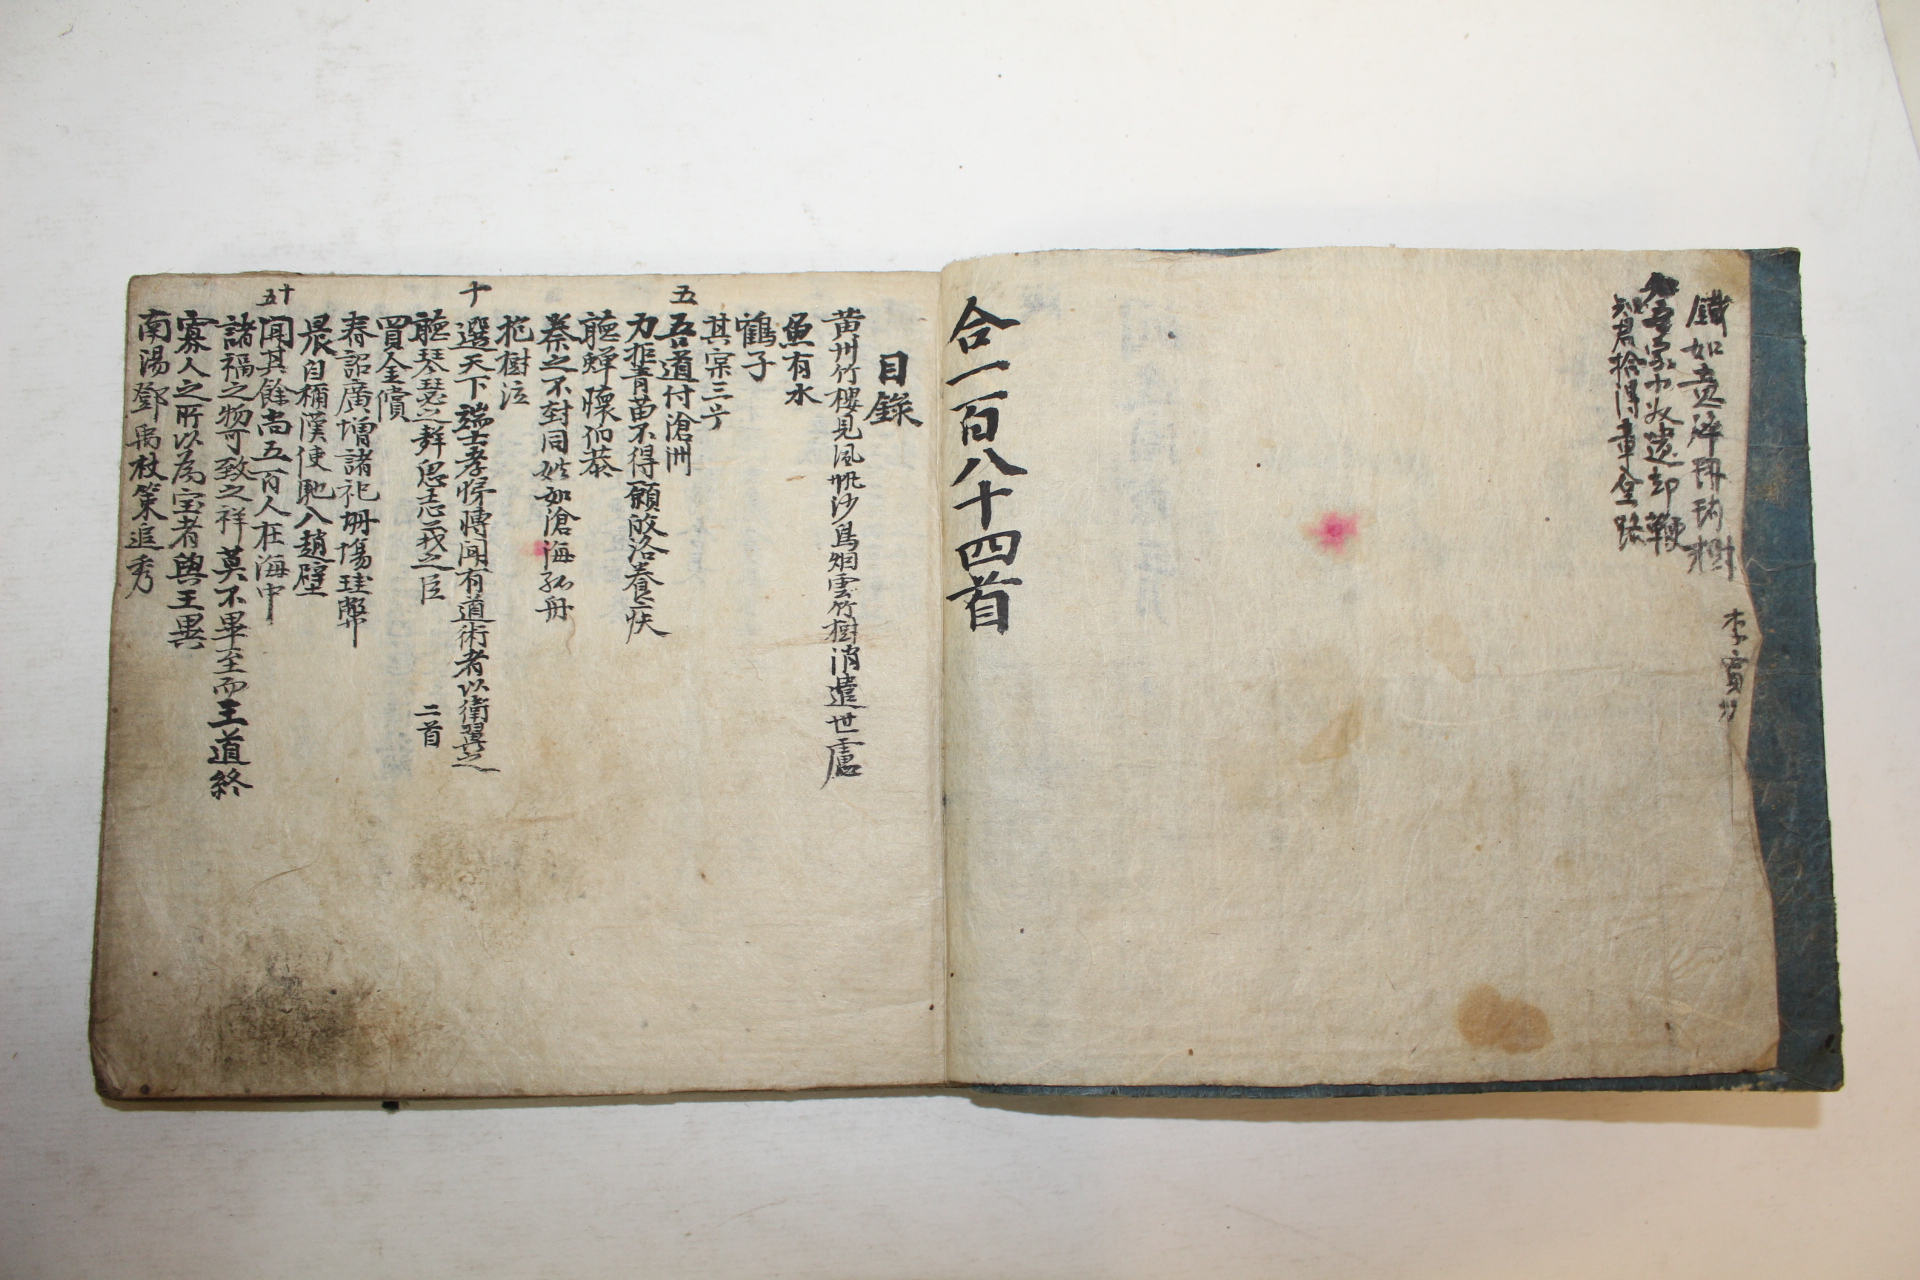 鐵如意碎珊瑚樹
吾家小奴遺却鞭
知君拾得章臺路
李寅
合一百八十四首
目錄
黃州竹樓見風帆沙鳥烟雲竹樹消遣世慮
魚有水
鶴子
其宗三
五
吾道付滄洲
力拒靑苗不得願改洛養疾
聽蟬懷伯恭
蔡之不封同姓如滄海孤舟
抱樹泣
十
選天下端士孝悌博聞有道術者以衛翼之
聽琴瑟之聲思志義之臣 二首
買金償
春詔廣增諸祀珊瑒珪幣
晨自稱漢使馳入趙壁
十五
聞其餘尚五百人在海中
諸福之物可致之祥莫不畢至而王道終
寡人之所以為宝者與王異
南陽鄧禹杖策追秀